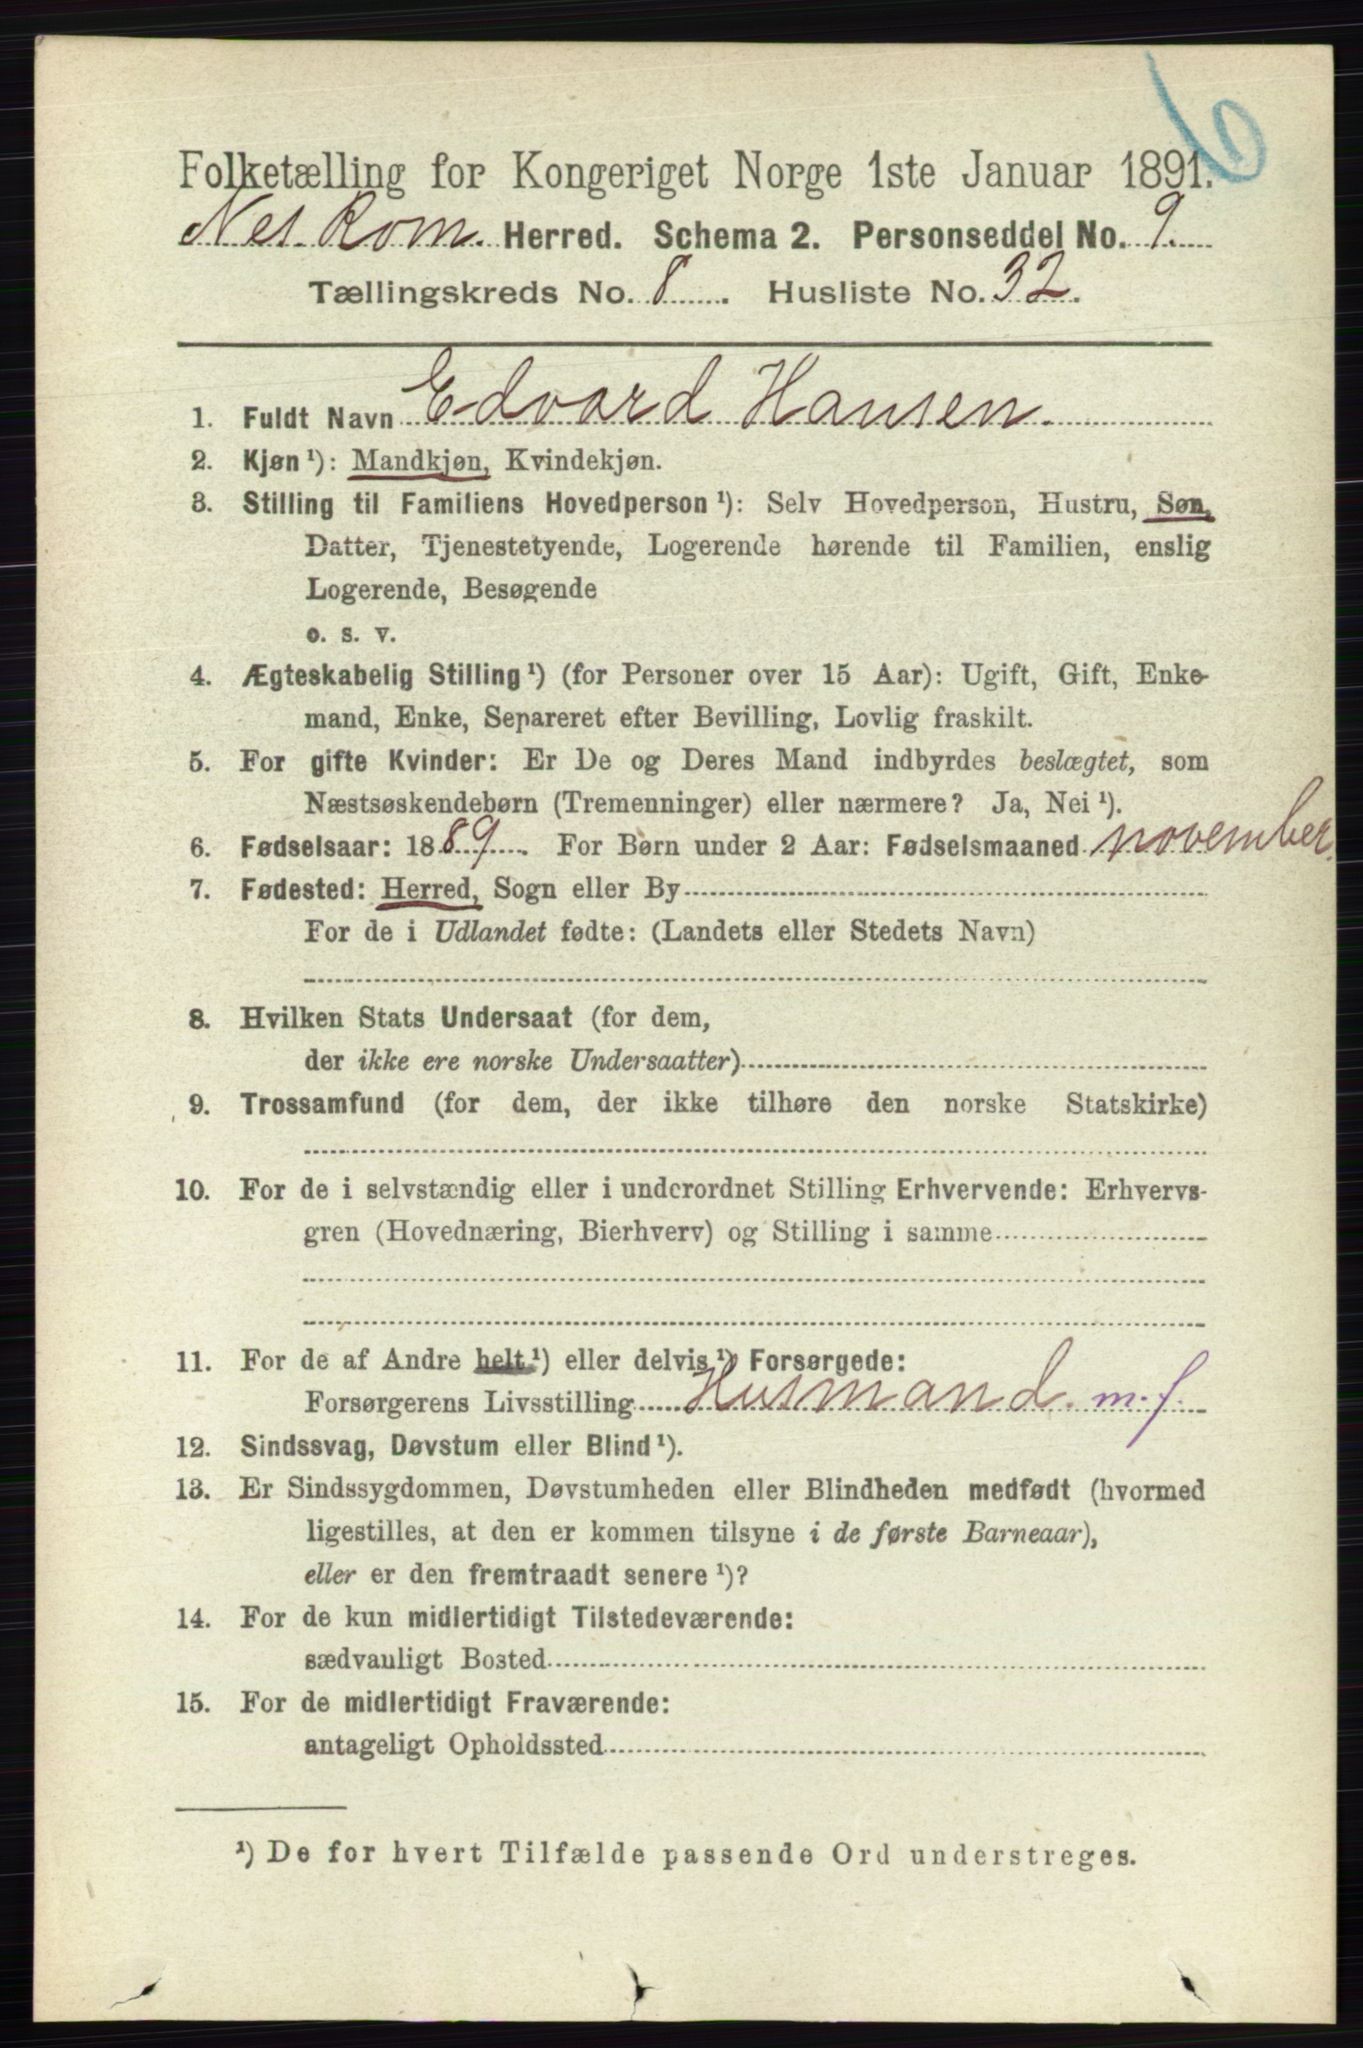 6
Folketælling for Kongeriget Norge 1ste Januar 1891.
Nes Rom. Herred. Schema 2. Personseddel No. 9.
Tællingskreds No. 8. Husliste No. 32.
1. Fuldt Navn Edvard Hansen.
2. Kjøn ¹): Mandkjøn, Kvindekjøn.
3. Stilling til Familiens Hovedperson ¹): Selv Hovedperson, Hustru, Søn,
Datter, Tjenestetyende, Logerende hørende til Familien, enslig
Logerende, Besøgende
o. s. v.
4. Ægteskabelig Stilling ¹) (for Personer over 15 Aar): Ugift, Gift, Enke-
mand, Enke, Separeret efter Bevilling, Lovlig fraskilt.
5. For gifte Kvinder: Er De og Deres Mand indbyrdes beslægtet, som
Næstsøskendebørn (Tremenninger) eller nærmere? Ja, Nei ¹).
6. Fødselsaar: 1889. For Børn under 2 Aar: Fødselsmaaned november.
7. Fødested: Herred, Sogn eller By
For de i Udlandet fødte: (Landets eller Stedets Navn)
8. Hvilken Stats Undersaat (for dem,
der ikke ere norske Undersaatter)
9. Trossamfund (for dem, der ikke tilhøre den norske Statskirke)
10. For de i selvstændig eller i underordnet Stilling Erhvervende: Erhvervs-
gren (Hovednæring, Bierhverv) og Stilling i samme
11. For de af Andre helt ¹) eller delvis ¹) Forsørgede:
Forsørgerens Livsstilling Husmand. m. f.
12. Sindssvag, Døvstum eller Blind ¹).
13. Er Sindssygdommen, Døvstumheden eller Blindheden medfødt (hvormed
ligestilles, at den er kommen tilsyne i de første Barneaar),
eller er den fremtraadt senere ¹)?
14. For de kun midlertidigt Tilstedeværende:
sædvanligt Bosted
15. For de midlertidigt Fraværende:
antageligt Opholdssted
¹) De for hvert Tilfælde passende Ord understreges.